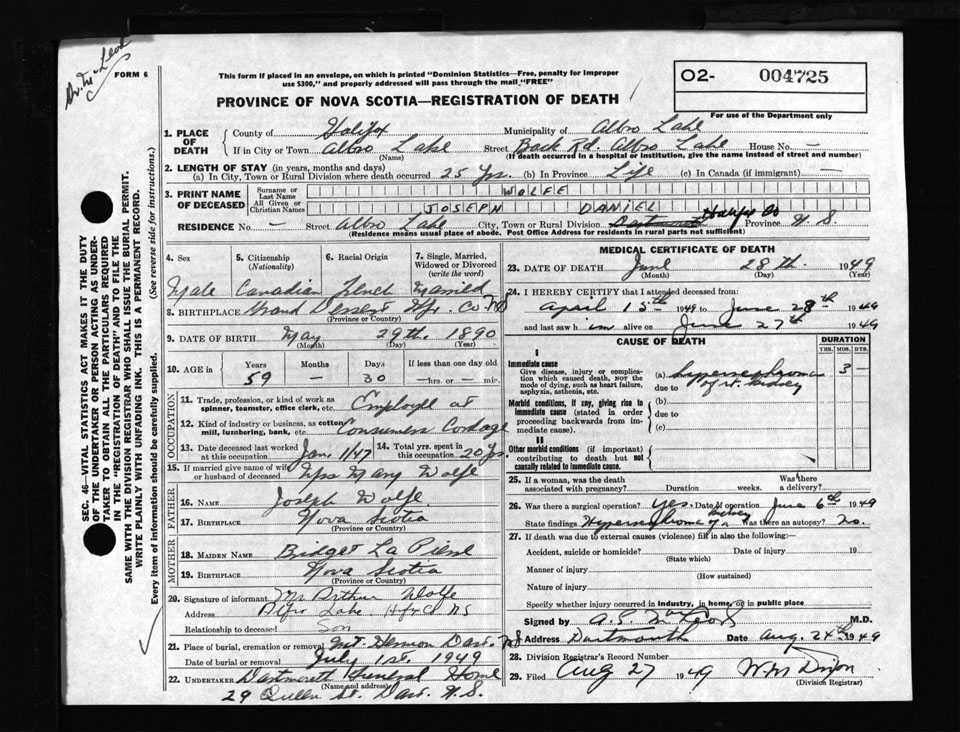 Dr. Mc Leod
FORM 6
This form if placed in an envelope, on which is printed "Dominion Statistics—Free, penalty for improper
use $300," and properly addressed will pass through the mail "FREE"
O2- 004725
For use of the Department only
PROVINCE OF NOVA SCOTIA—REGISTRATION OF DEATH
1. PLACE OF DEATH
County of Halifax Municipality of Albro Lake
If in City or Town Albro Lake Street Back Rd. Albro Lake House No. —
(Name) (If death occurred in a hospital or institution, give the name instead of street and number)
2. LENGTH OF STAY (in years, months and days)
(a) In City, Town or Rural Division where death occurred 25 Yrs. (b) In Province Life (c) In Canada (if immigrant) —
3. PRINT NAME OF DECEASED
Surname or Last Name WOLFE
All Given or Christian Names JOSEPH DANIEL
RESIDENCE No. — Street Albro Lake City, Town or Rural Division Dartmouth Halifax Co Province N. S.
(Residence means usual place of abode. Post Office Address for residents in rural parts not sufficient)
4. Sex 5. Citizenship (Nationality) 6. Racial Origin 7. Single, Married, Widowed or Divorced (write the word)
Male Canadian French Married
8. BIRTHPLACE Grand Desert Hfx. Co NS
(Province or Country)
9. DATE OF BIRTH May 29th. 1890
(Month) (Day) (Year)
10. AGE in Years Months Days If less than one day old
59 — 30 —hrs. or — min.
OCCUPATION
11. Trade, profession, or kind of work as spinner, teamster, office clerk, etc. Employee at
12. Kind of industry or business, as cotton mill, lumbering, bank, etc. Consumers Cordage
13. Date deceased last worked at this occupation Jan. 1/47 14. Total yrs. spent in this occupation 20 Yrs.
15. If married give name of wife or husband of deceased Mrs Mary Wolfe
FATHER
16. Name Joseph Wolfe
17. Birthplace Nova Scotia
(Province or Country)
MOTHER
18. Maiden Name Bridget La Pierre
19. Birthplace Nova Scotia
(Province or Country)
20. Signature of informant Mr Arthur Wolfe
Address Albro Lake Hfx Co NS
Relationship to deceased Son
21. Place of burial, cremation or removal Mt. Hermon Dart. NS
Date of burial or removal July 1st. 1949
22. UNDERTAKER Dartmouth Funeral Home
(Name and address)
29 Queen St. Dart. N. S.
MEDICAL CERTIFICATE OF DEATH
23. DATE OF DEATH June 28th. 1949
(Month) (Day) (Year)
24. I HEREBY CERTIFY that I attended deceased from:
April 15th 1949 to June 28th 1949
and last saw him alive on June 27th 1949
CAUSE OF DEATH
DURATION
YRS. MOS. DYS.
I
Immediate cause
Give disease, injury or complication which caused death, not the mode of dying, such as heart failure, asphyxia, asthenia, etc.
(a) hypernephroma 3 —
due to of rt. kidney
Morbid conditions, if any, giving rise to immediate cause (stated in order proceeding backwards from immediate cause).
(b)
due to
(c)
II
Other morbid conditions (if important) contributing to death but not causally related to immediate cause.
25. If a woman, was the death associated with pregnancy? Duration weeks. Was there a delivery?
26. Was there a surgical operation? yes. Date of operation June 6th 1949
State findings Hypernephroma of r. kidney Was there an autopsy? no.
27. If death was due to external causes (violence) fill in also the following:
Accident, suicide or homicide? Date of injury 19
(State which)
Manner of injury
(How sustained)
Nature of injury
Specify whether injury occurred in industry, in home, or in public place
Signed by M.D.
Address Dartmouth Date Aug. 24th 1949
28. Division Registrar's Record Number
29. Filed Aug 27 1949 W M Dixon
(Division Registrar)
SEC. 46—VITAL STATISTICS ACT MAKES IT THE DUTY
OF THE UNDERTAKER OR PERSON ACTING AS UNDERTAKER
TO OBTAIN ALL THE PARTICULARS REQUIRED
IN THE "REGISTRATION OF DEATH" AND TO FILE THE
SAME WITH THE DIVISION REGISTRAR WHO SHALL ISSUE THE BURIAL PERMIT.
WRITE PLAINLY WITH UNFADING INK. THIS IS A PERMANENT RECORD.
Every item of information should be carefully supplied. (See reverse side for instructions.)